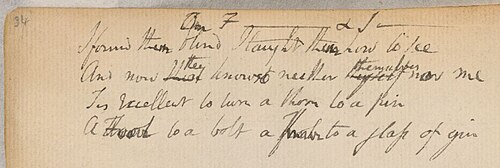 34
On F —— & S —
I found them blind I taught them how to see
And now they know neither themselves nor me
Tis Excellent to turn a thorn to a pin
A to a bolt a Knave to a glass of gin